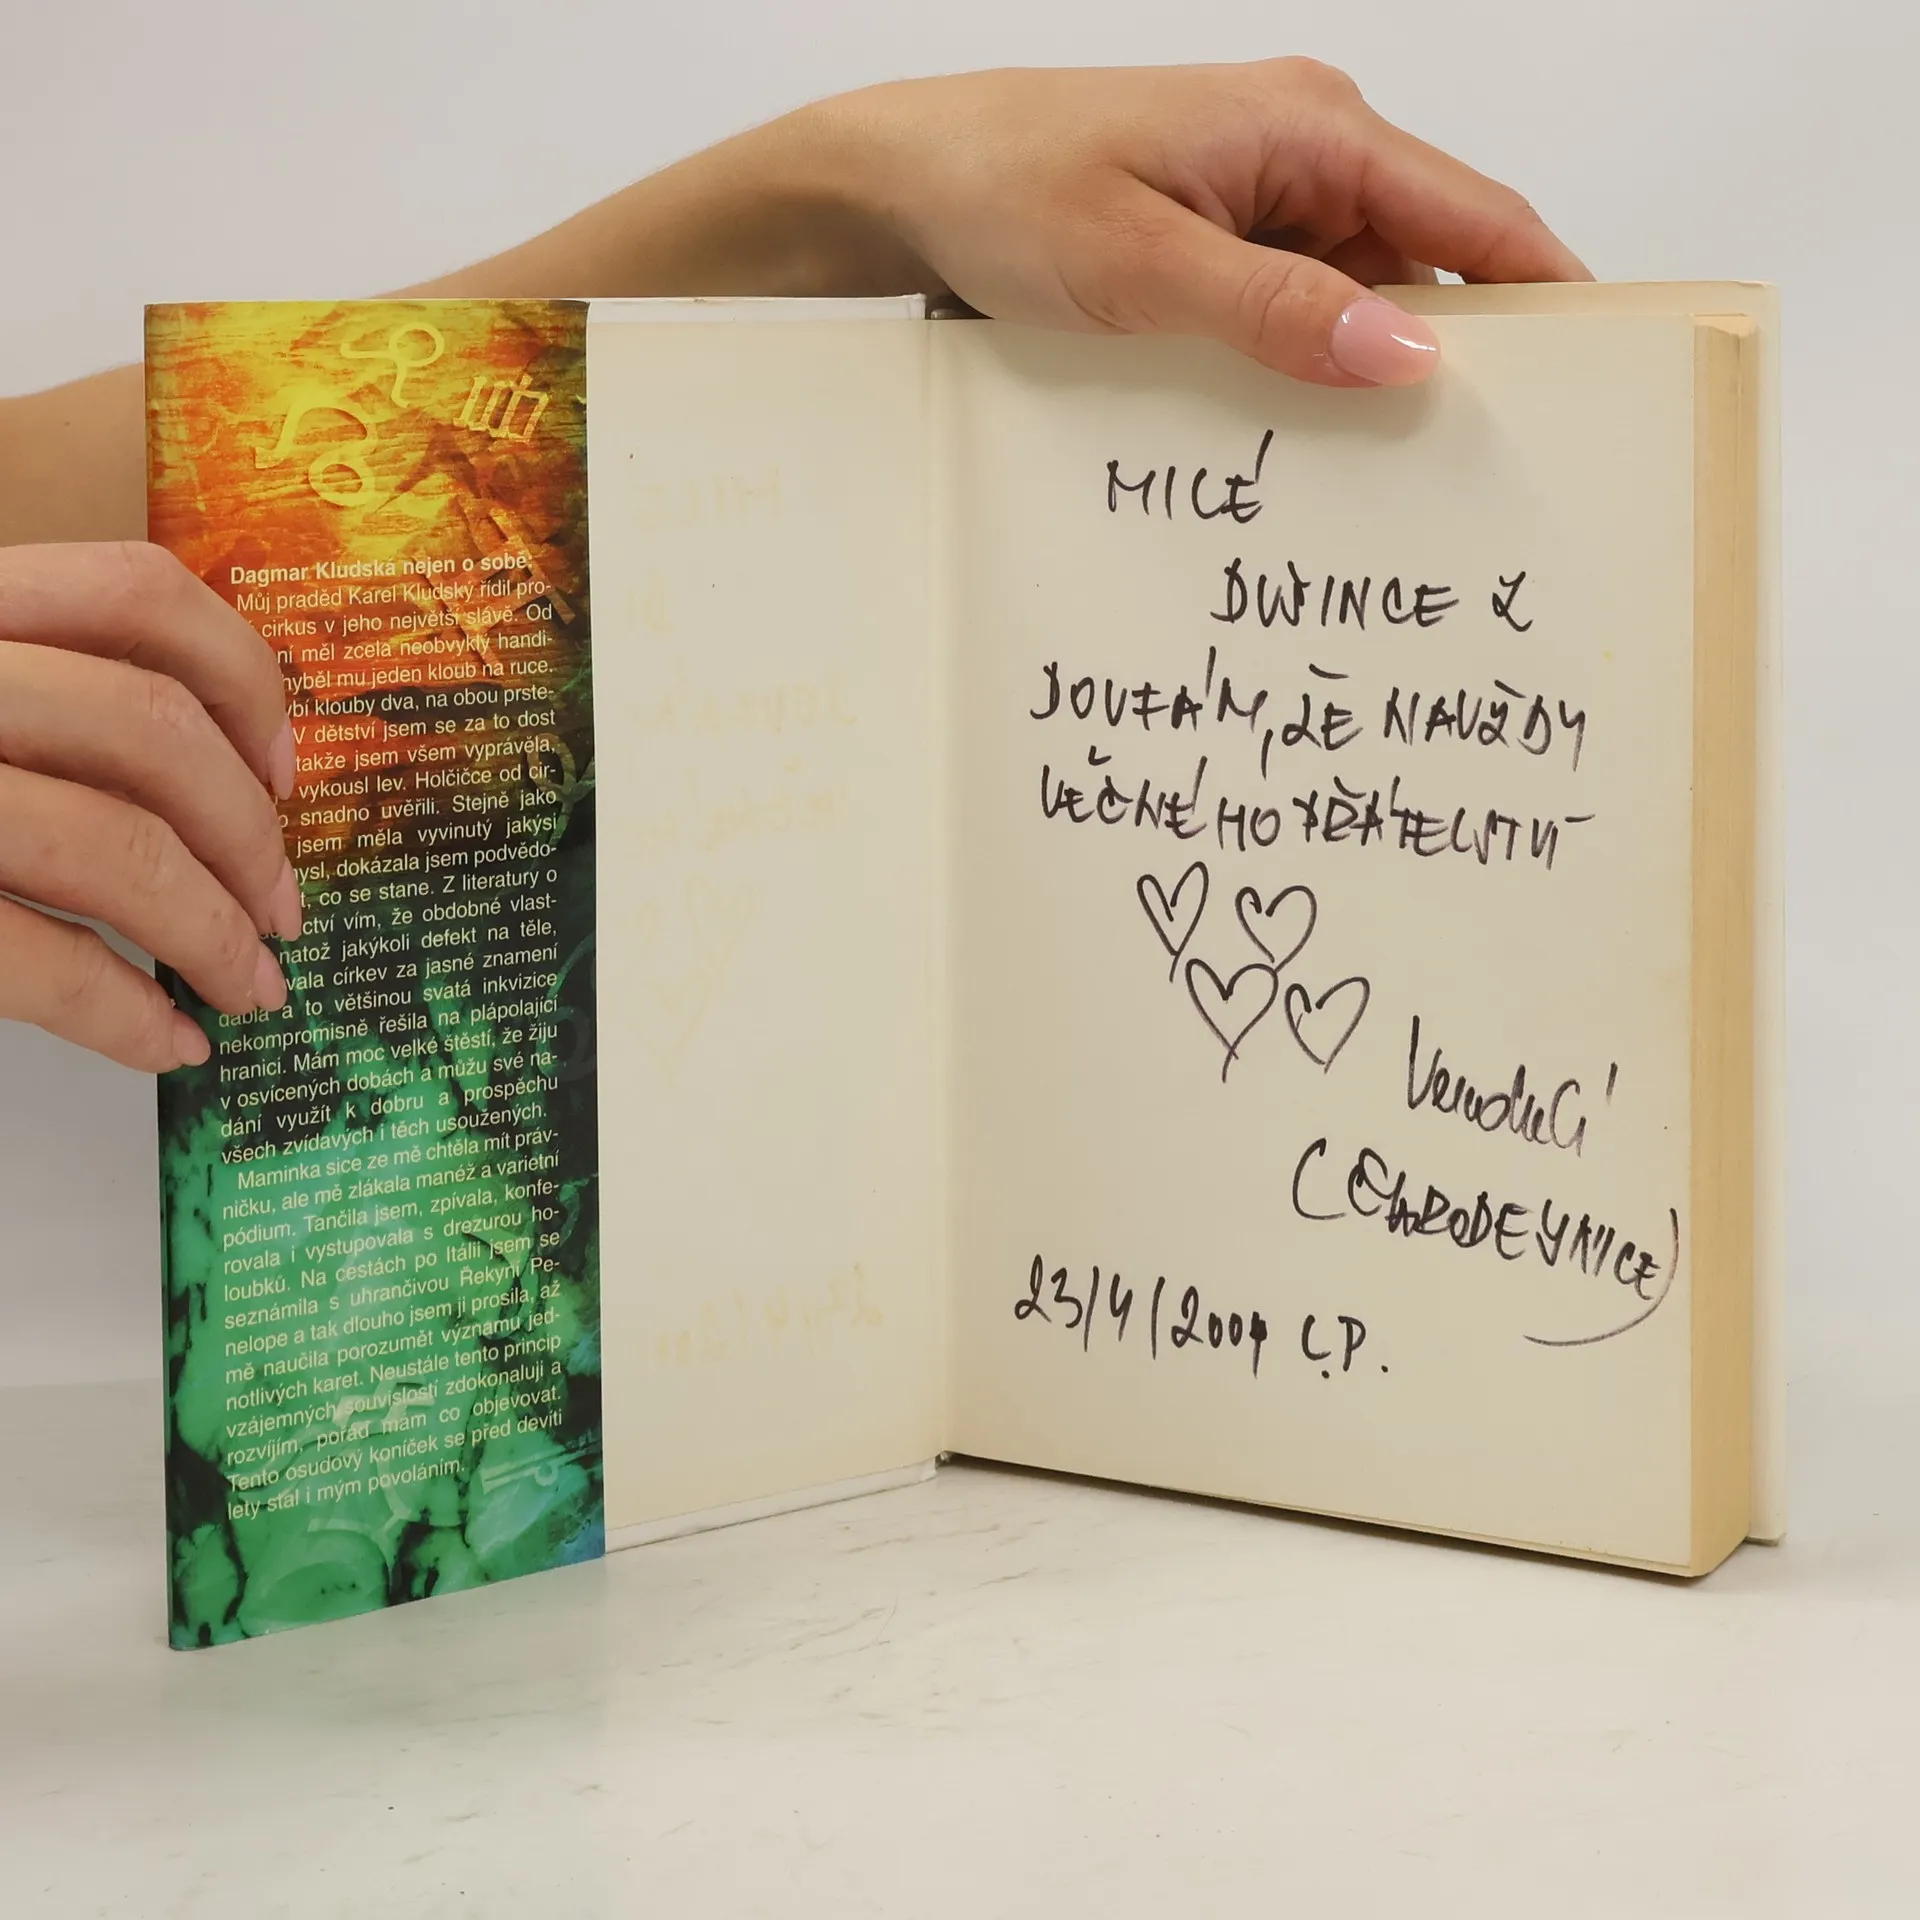 Dagmar Kludská nejen o sobě:
Můj praděd Karel Kludský řídil pro-
cirkus v jeho největší slávě. Od
ní měl zcela neobvyklý handi-
hyběl mu jeden kloub na ruce.
ybí klouby dva, na obou prste-
V dětství jsem se za to dost
takže jsem všem vyprávěla,
vykousl lev. Holčičce od cir-
o snadno uvěřili. Stejně jako
jsem měla vyvinutý jakýsi
mysl, dokázala jsem podvědo-
t, co se stane. Z literatury o
ctví vím, že obdobné vlast-
natož jakýkoli defekt na těle,
vala církev za jasné znamení
ďábla a to většinou svatá inkvizice
nekompromisně řešila na plápolající
hranici. Mám moc velké štěstí, že žiju
v osvícených dobách a můžu své na-
dání využít k dobru a prospěchu
všech zvídavých i těch usoužených.
Maminka sice ze mě chtěla mít práv-
ničku, ale mě zlákala manéž a varietní
pódium. Tančila jsem, zpívala, konfe-
rovala i vystupovala s drezurou ho-
loubků. Na cestách po Itálii jsem se
seznámila s uhrančivou Řekyní Pe-
nelope a tak dlouho jsem ji prosila, až
mě naučila porozumět významu jed-
notlivých karet. Neustále tento princip
vzájemných souvislostí zdokonaluji a
rozvíjím, pořád mám co objevovat.
Tento osudový koníček se před devíti
lety stal i mým povoláním.
MILÉ
DUŠINCE Z
DOUFÁM, ŽE NAVŽDY
VĚČNÉHO PŘÁTELSTVÍ
(ČARODEJNICE)
23/4/2004 Č.P.